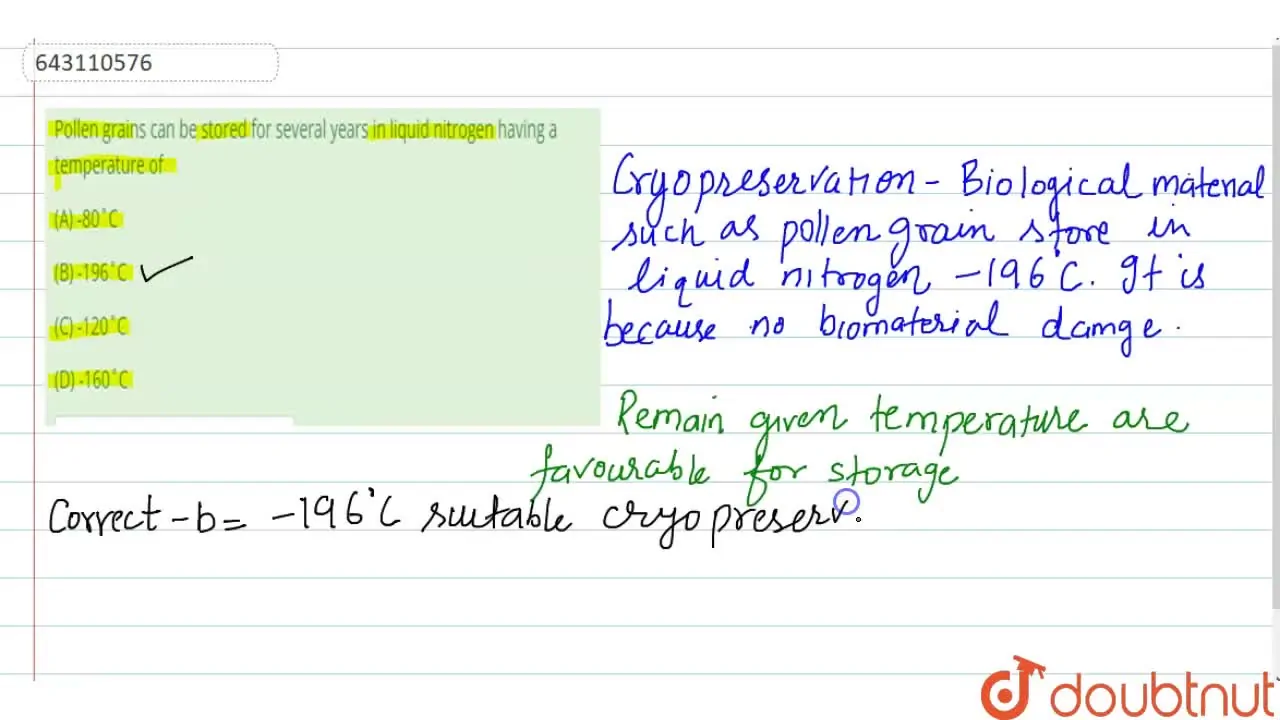 643110576
Pollen grains can be stored for several years in liquid nitrogen having a
temperature of
(A) -80°C
(B) -196°C
(C) -120°C
(D) -160°C
Cryopreservation - Biological material
such as pollen grain store in
liquid nitrogen -196°C. It is
because no biomaterial damge.
Remain given temperature are
favourable for storage
Correct - b = -196°C suitable cryopreserv.
doubtnut